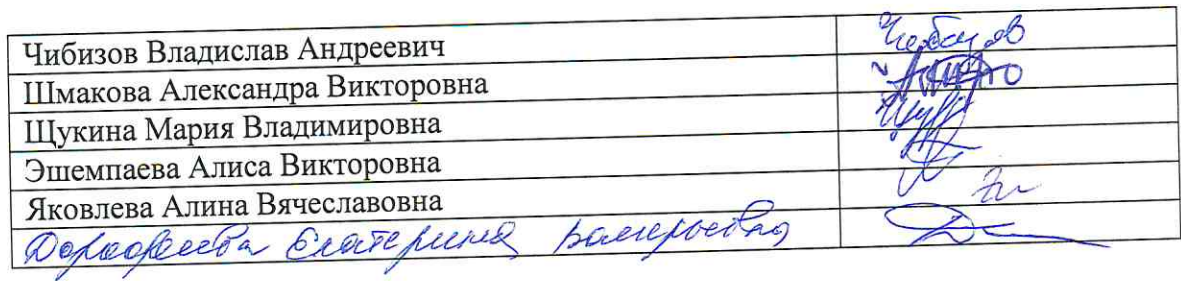 Чибизов Владислав Андреевич
Шмакова Александра Викторовна
Щукина Мария Владимировна
Эшемпаева Алиса Викторовна
Яковлева Алина Вячеславовна
Дорофеева Екатерина Валерьевна